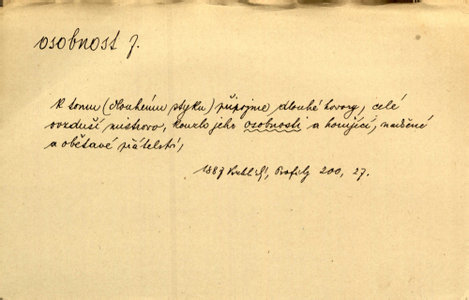 osobnost f.
K tomu (dlouhému styku) připojme dlouhé hovory, celé
ovzduší mistrovo, kouzlo jeho osobnosti a horující, nadšené
a obětavé přátelství,
1887 Vrchlický, Profily 200, 27.